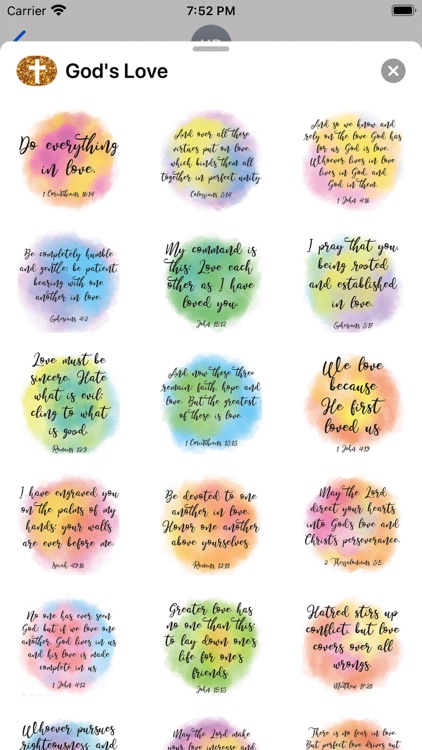 Carrier 7:52 PM
God's Love
Do everything
in love.
1 Corinthians 16:14
And over all these
virtues put on love,
which binds them all
together in perfect unity
Colossians 3:14
And so we know and
rely on the love God has
for us. God is love.
Whoever lives in love
lives in God, and
God in them.
1 John 4:16
Be completely humble
and gentle; be patient,
bearing with one
another in love.
Ephesians 4:2
My command is
this: Love each
other as I have
loved you.
John 15:12
I pray that you,
being rooted
and established
in love,
Ephesians 3:17
Love must be
sincere. Hate
what is evil;
cling to what
is good.
Romans 12:9
And now these three
remain: faith, hope and
love. But the greatest
of these is love.
1 Corinthians 13:13
We love
because
He first
loved us.
1 John 4:19
I have engraved you
on the palms of my
hands; your walls
are ever before me.
Isaiah 49:16
Be devoted to one
another in love.
Honor one another
above yourselves.
Romans 12:10
May the Lord
direct your hearts
into God's love and
Christ's perseverance.
2 Thessalonians 3:5
No one has ever seen
God; but if we love one
another, God lives in us
and his love is made
complete in us.
1 John 4:12
Greater love has
no one than this:
to lay down one's
life for one's
friends.
John 15:13
Hatred stirs up
conflict, but love
covers over all
wrongs.
Whoever pursues
righteousness and
May the Lord make
your love increase and
There is no fear in love.
But perfect love drives out